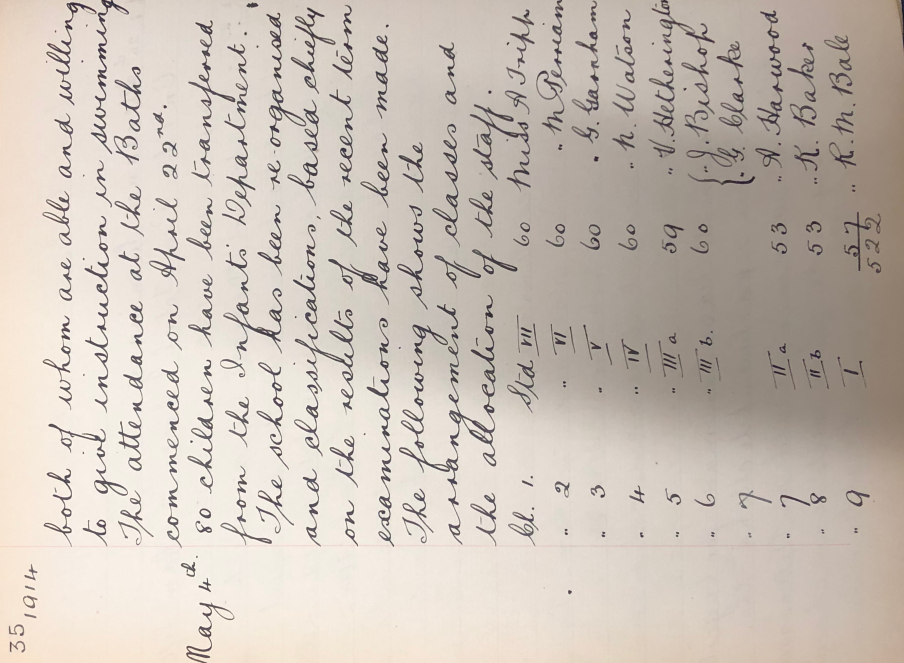 35
1914
both of whom are able and willing
to give instruction in swimming
The attendance at the Baths
commenced on April 22nd.
May 4th. 80 children have been transferred
from the Infants Department.
The school has been re-organised
and classifications, based chiefly
on the results of the recent term
examinations have been made.
The following shows the
arrangement of classes and
the allocation of the staff.
Cl. 1. Std VII 60 Miss A Tripp
" 2 " VI 60 " M Perriam
" 3 " V 60 " G. Garnham
" 4 " IV 60 " N. Watson
" 5 " III a 59 " V. Hetherington
" 6 " III b. 60 " { J. Bishop
G Clarke
" 7
" 7 II a 53 " A. Harwood
" 8 II b 53 " K. Baker
" 9 I 57 " R. M. Bale
522